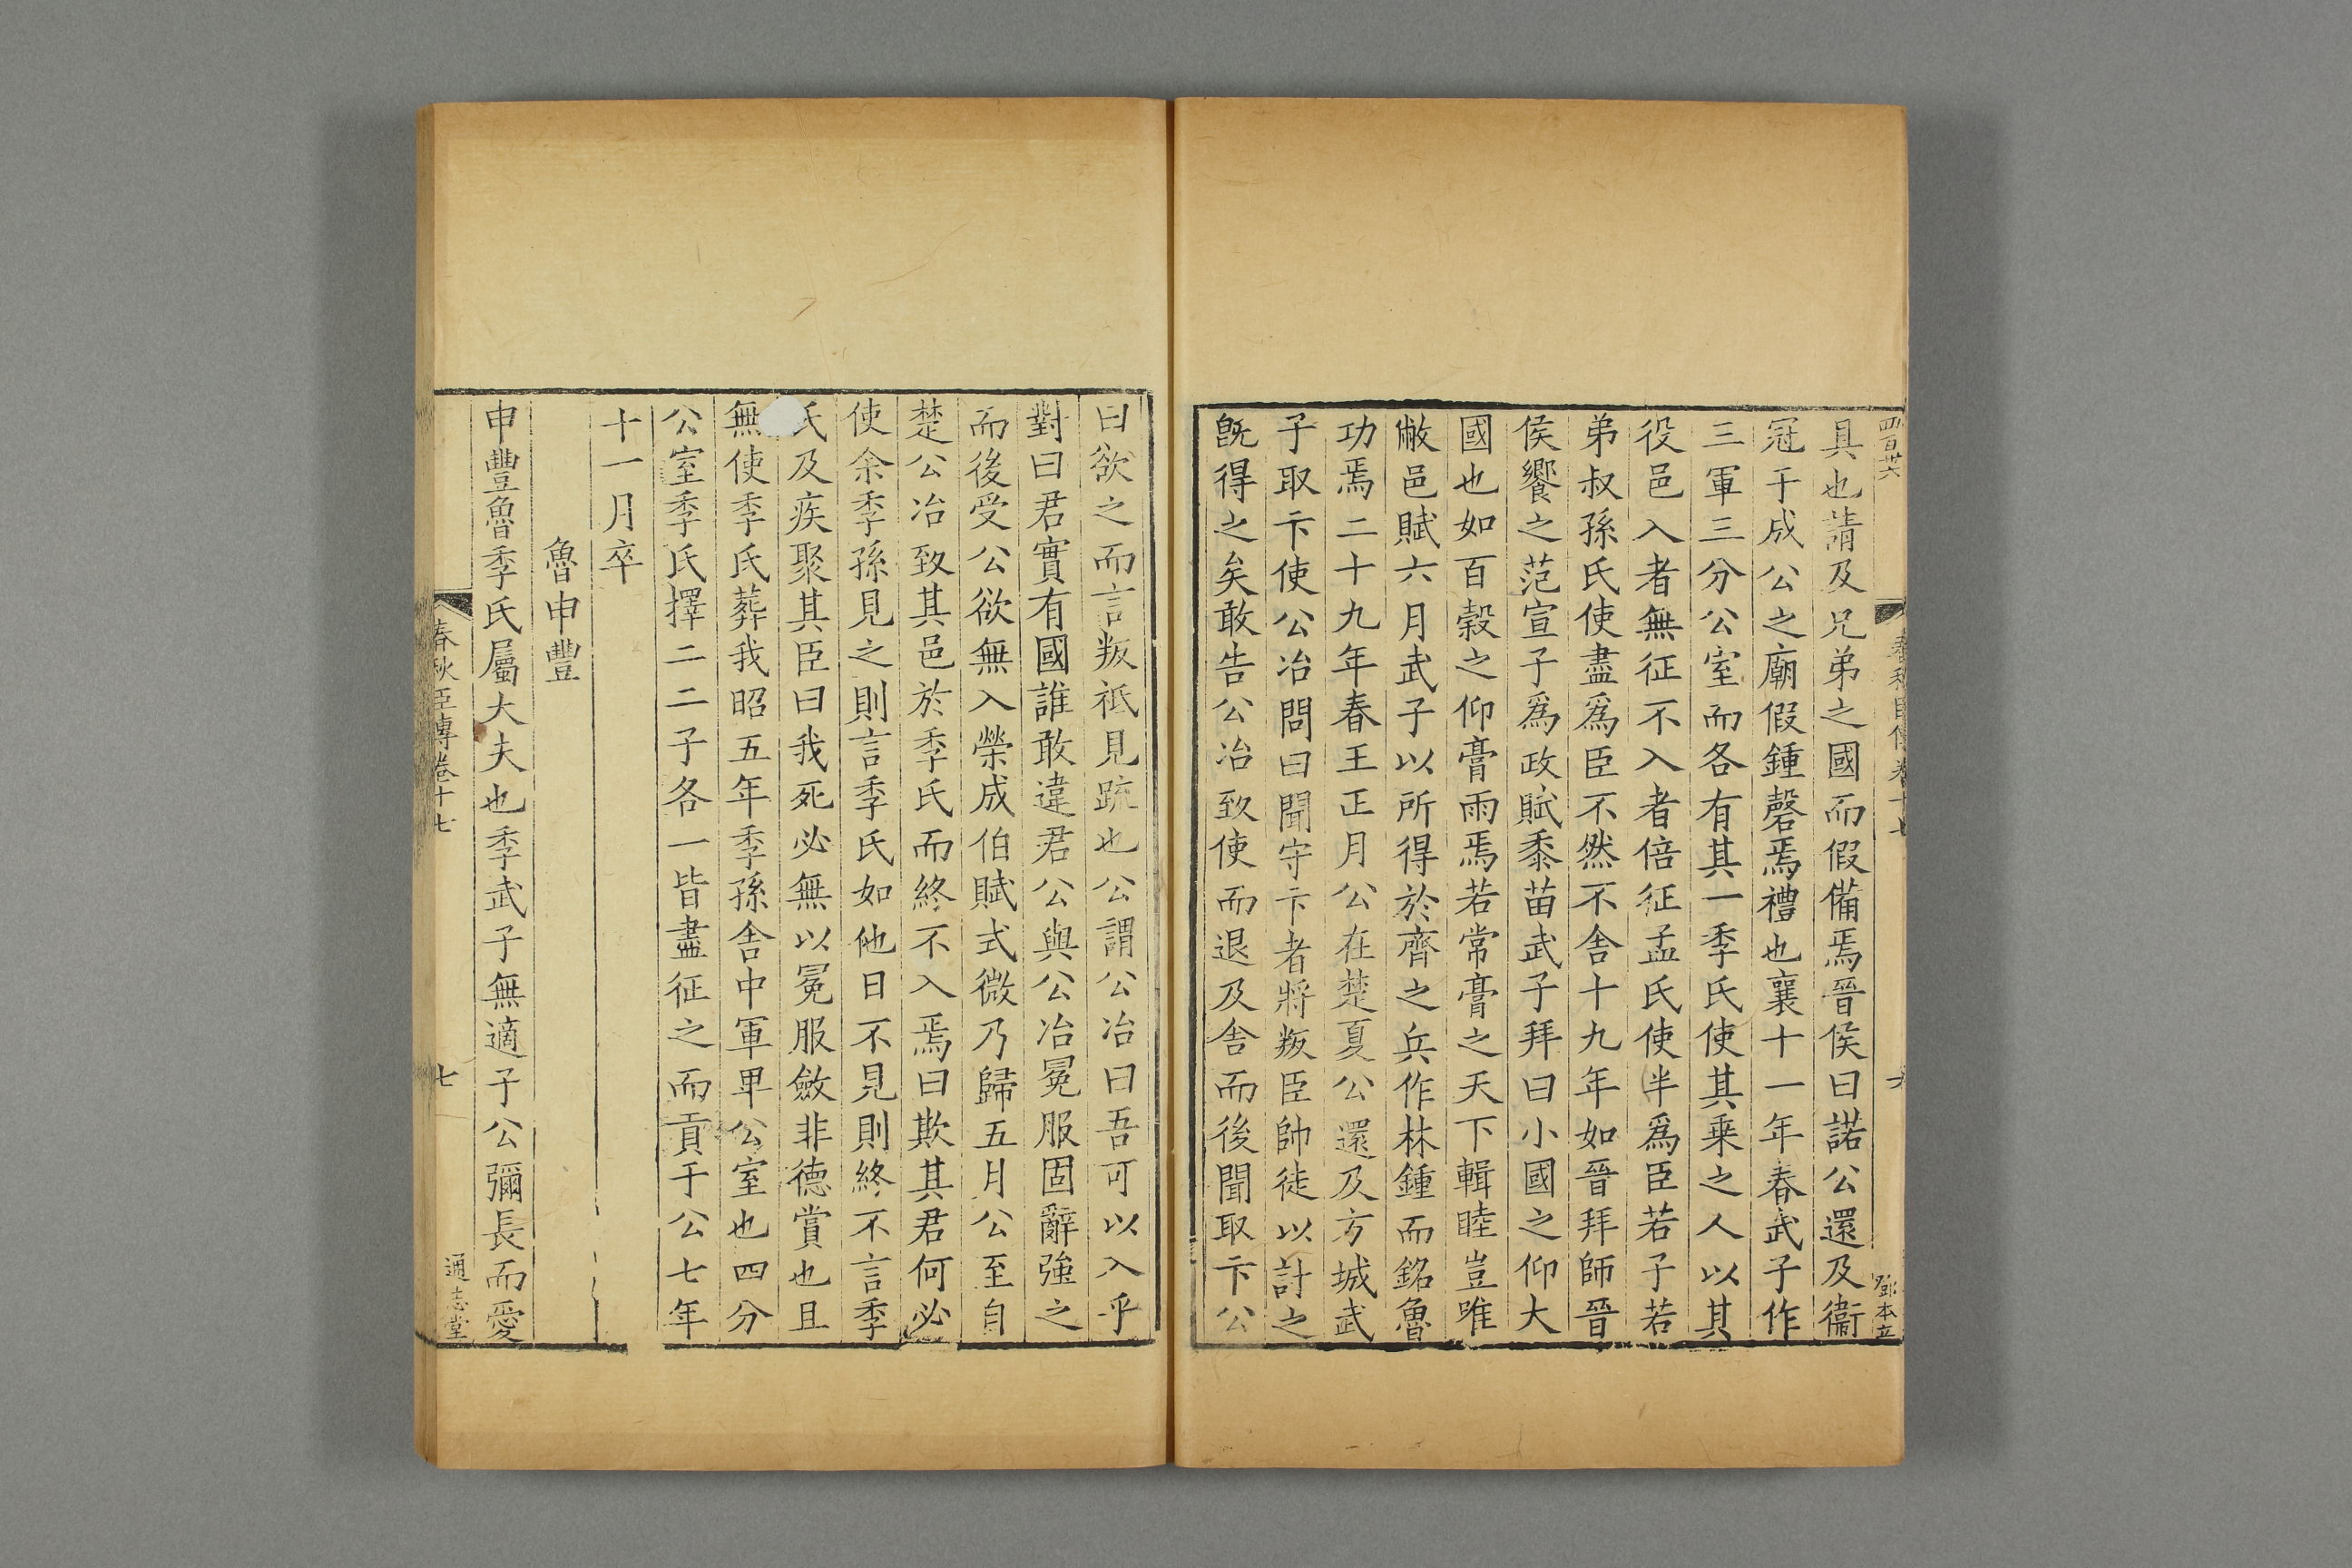 四百卅六
春秋臣傳卷十七
六
鄧本立
具也請及兄弟之國而假備焉晉侯曰諾公還及衞
冠于成公之廟假鍾磬焉禮也襄十一年春武子作
三軍三分公室而各有其一季氏使其乗之人以其
役邑入者無征不入者倍征孟氏使半爲臣若子若
弟叔孫氏使盡爲臣不然不舍十九年如晉拜師晉
侯饗之范宣子爲政賦黍苗武子拜曰小國之仰大
國也如百穀之仰膏雨焉若常膏之天下輯睦豈唯
敝邑賦六月武子以所得於齊之兵作林鍾而銘魯
功焉二十九年春王正月公在楚夏公還及方城武
子取卞使公冶問曰聞守卞者將叛臣帥徒以討之
旣得之矣敢告公冶致使而退及舍而後聞取卞公
曰欲之而言叛祗見疏也公謂公冶曰吾可以入乎
對曰君實有國誰敢違君公與公冶冕服固辭強之
而後受公欲無入榮成伯賦式微乃歸五月公至自
楚公冶致其邑於季氏而終不入焉曰欺其君何必
使余季孫見之則言季氏如他日不見則終不言季
氏及疾聚其臣曰我死必無以冕服斂非德賞也且
無使季氏葬我昭五年季孫舍中軍卑公室也四分
公室季氏擇二二子各一皆盡征之而貢于公七年
十一月卒
魯申豐
申豐魯季氏屬大夫也季武子無適子公彌長而愛
春秋臣傳卷十七
七
通志堂